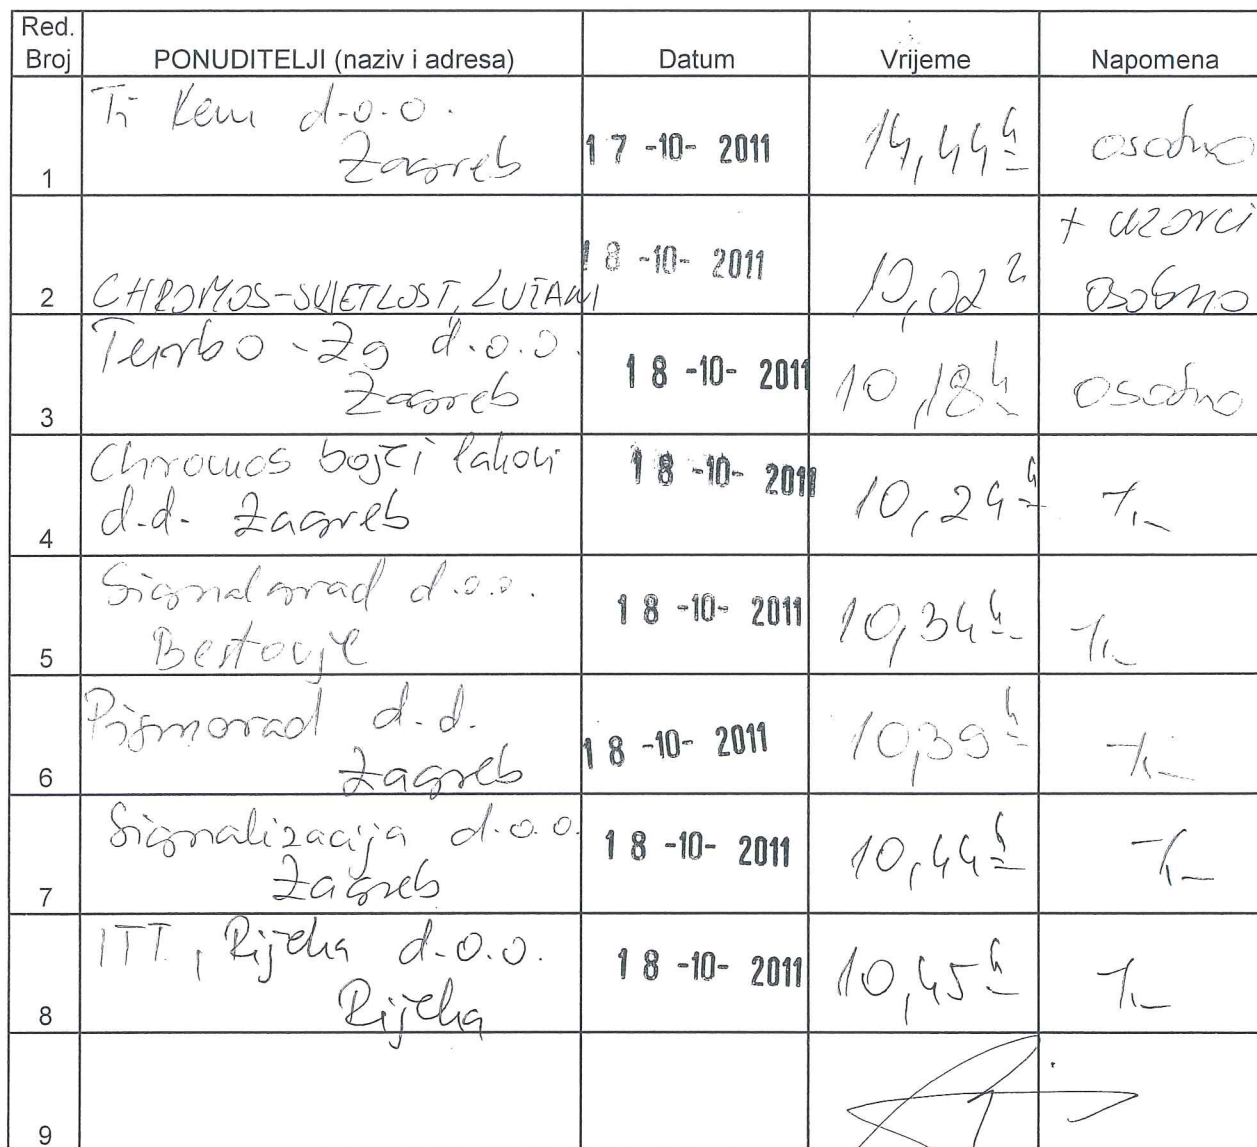 Red. Broj PONUDITELJI (naziv i adresa) Datum Vrijeme Napomena
1 Ti Kem d.o.o. Zagreb 17 -10- 2011 14,44 h osobno
2 CHROMOS-SVJETLOST, LUŽANI 18 -10- 2011 10,02 h + uzorci osobno
3 Turbo-Zg d.o.o. Zagreb 18 -10- 2011 10,18 h osobno
4 Chromos boje i lakovi d.d. Zagreb 18 -10- 2011 10,24 h -"-
5 Signalgrad d.o.o. Bestovje 18 -10- 2011 10,34 h -"-
6 Pismorad d.d. Zagreb 18 -10- 2011 10,39 h -"-
7 Signalizacija d.o.o. Zagreb 18 -10- 2011 10,44 h -"-
8 ITT, Rijeka d.o.o. Rijeka 18 -10- 2011 10,45 h -"-
9